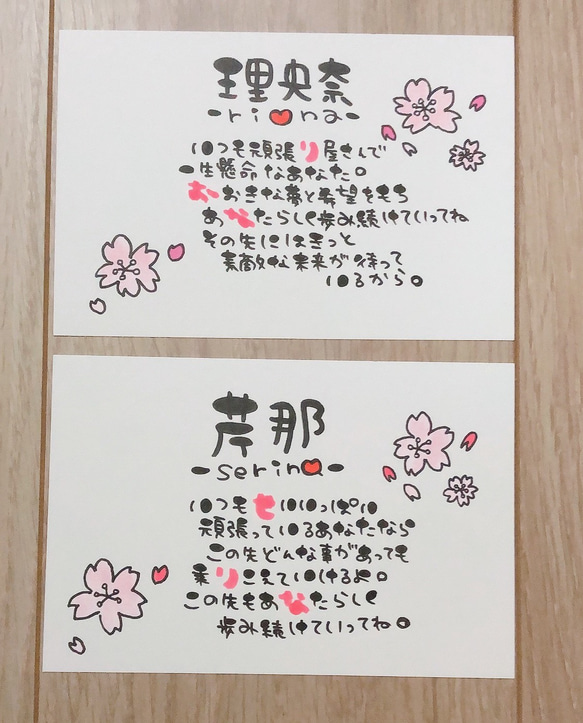 理央奈
-riona-
いつも頑張り屋さんで
一生懸命なあなた。
おーおきな夢と希望をもち
あなたらしく歩み続けていってね
その先にはきっと
素敵な未来が待って
いるから。
芹那
-serina-
いつもせいいっぱい
頑張っているあなたなら
この先どんな事があっても
乗りこえていけるよ。
この先もあなたらしく
歩み続けていってね。